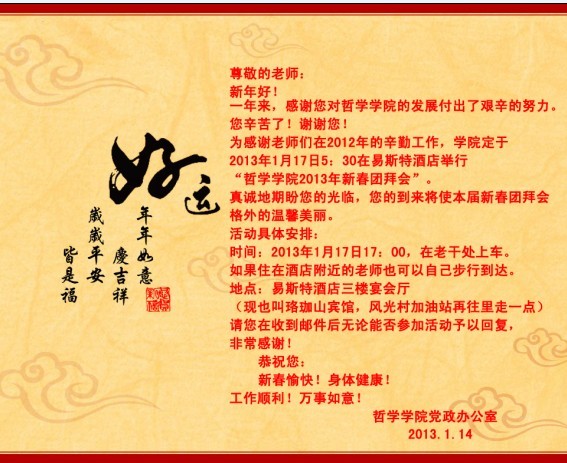 尊敬的老师：
新年好！
一年来，感谢您对哲学学院的发展付出了艰辛的努力。
您辛苦了！谢谢您！
为感谢老师们在2012年的辛勤工作，学院定于
2013年1月17日5：30在易斯特酒店举行
“哲学学院2013年新春团拜会”。
真诚地期盼您的光临，您的到来将使本届新春团拜会
格外的温馨美丽。
活动具体安排：
时间：2013年1月17日17：00，在老干处上车。
如果住在酒店附近的老师也可以自己步行到达。
地点：易斯特酒店三楼宴会厅
（现也叫珞珈山宾馆，风光村加油站再往里走一点）
请您在收到邮件后无论能否参加活动予以回复，
非常感谢！
恭祝您：
新春愉快！身体健康！
工作顺利！万事如意！
哲学学院党政办公室
2013.1.14
好运
年年如意
慶吉祥
歲歲平安
皆是福